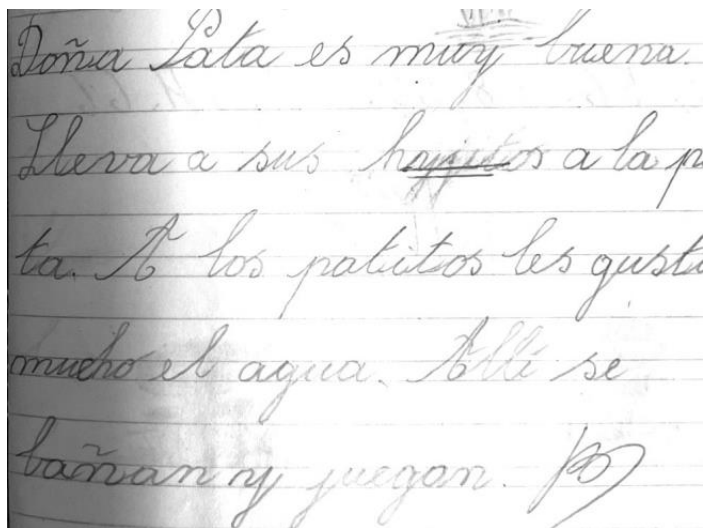 Doña Pata es muy buena.
Lleva a sus hijitos a la p
ta. A los patitos les gusta
mucho el agua. Allí se
bañan y juegan.